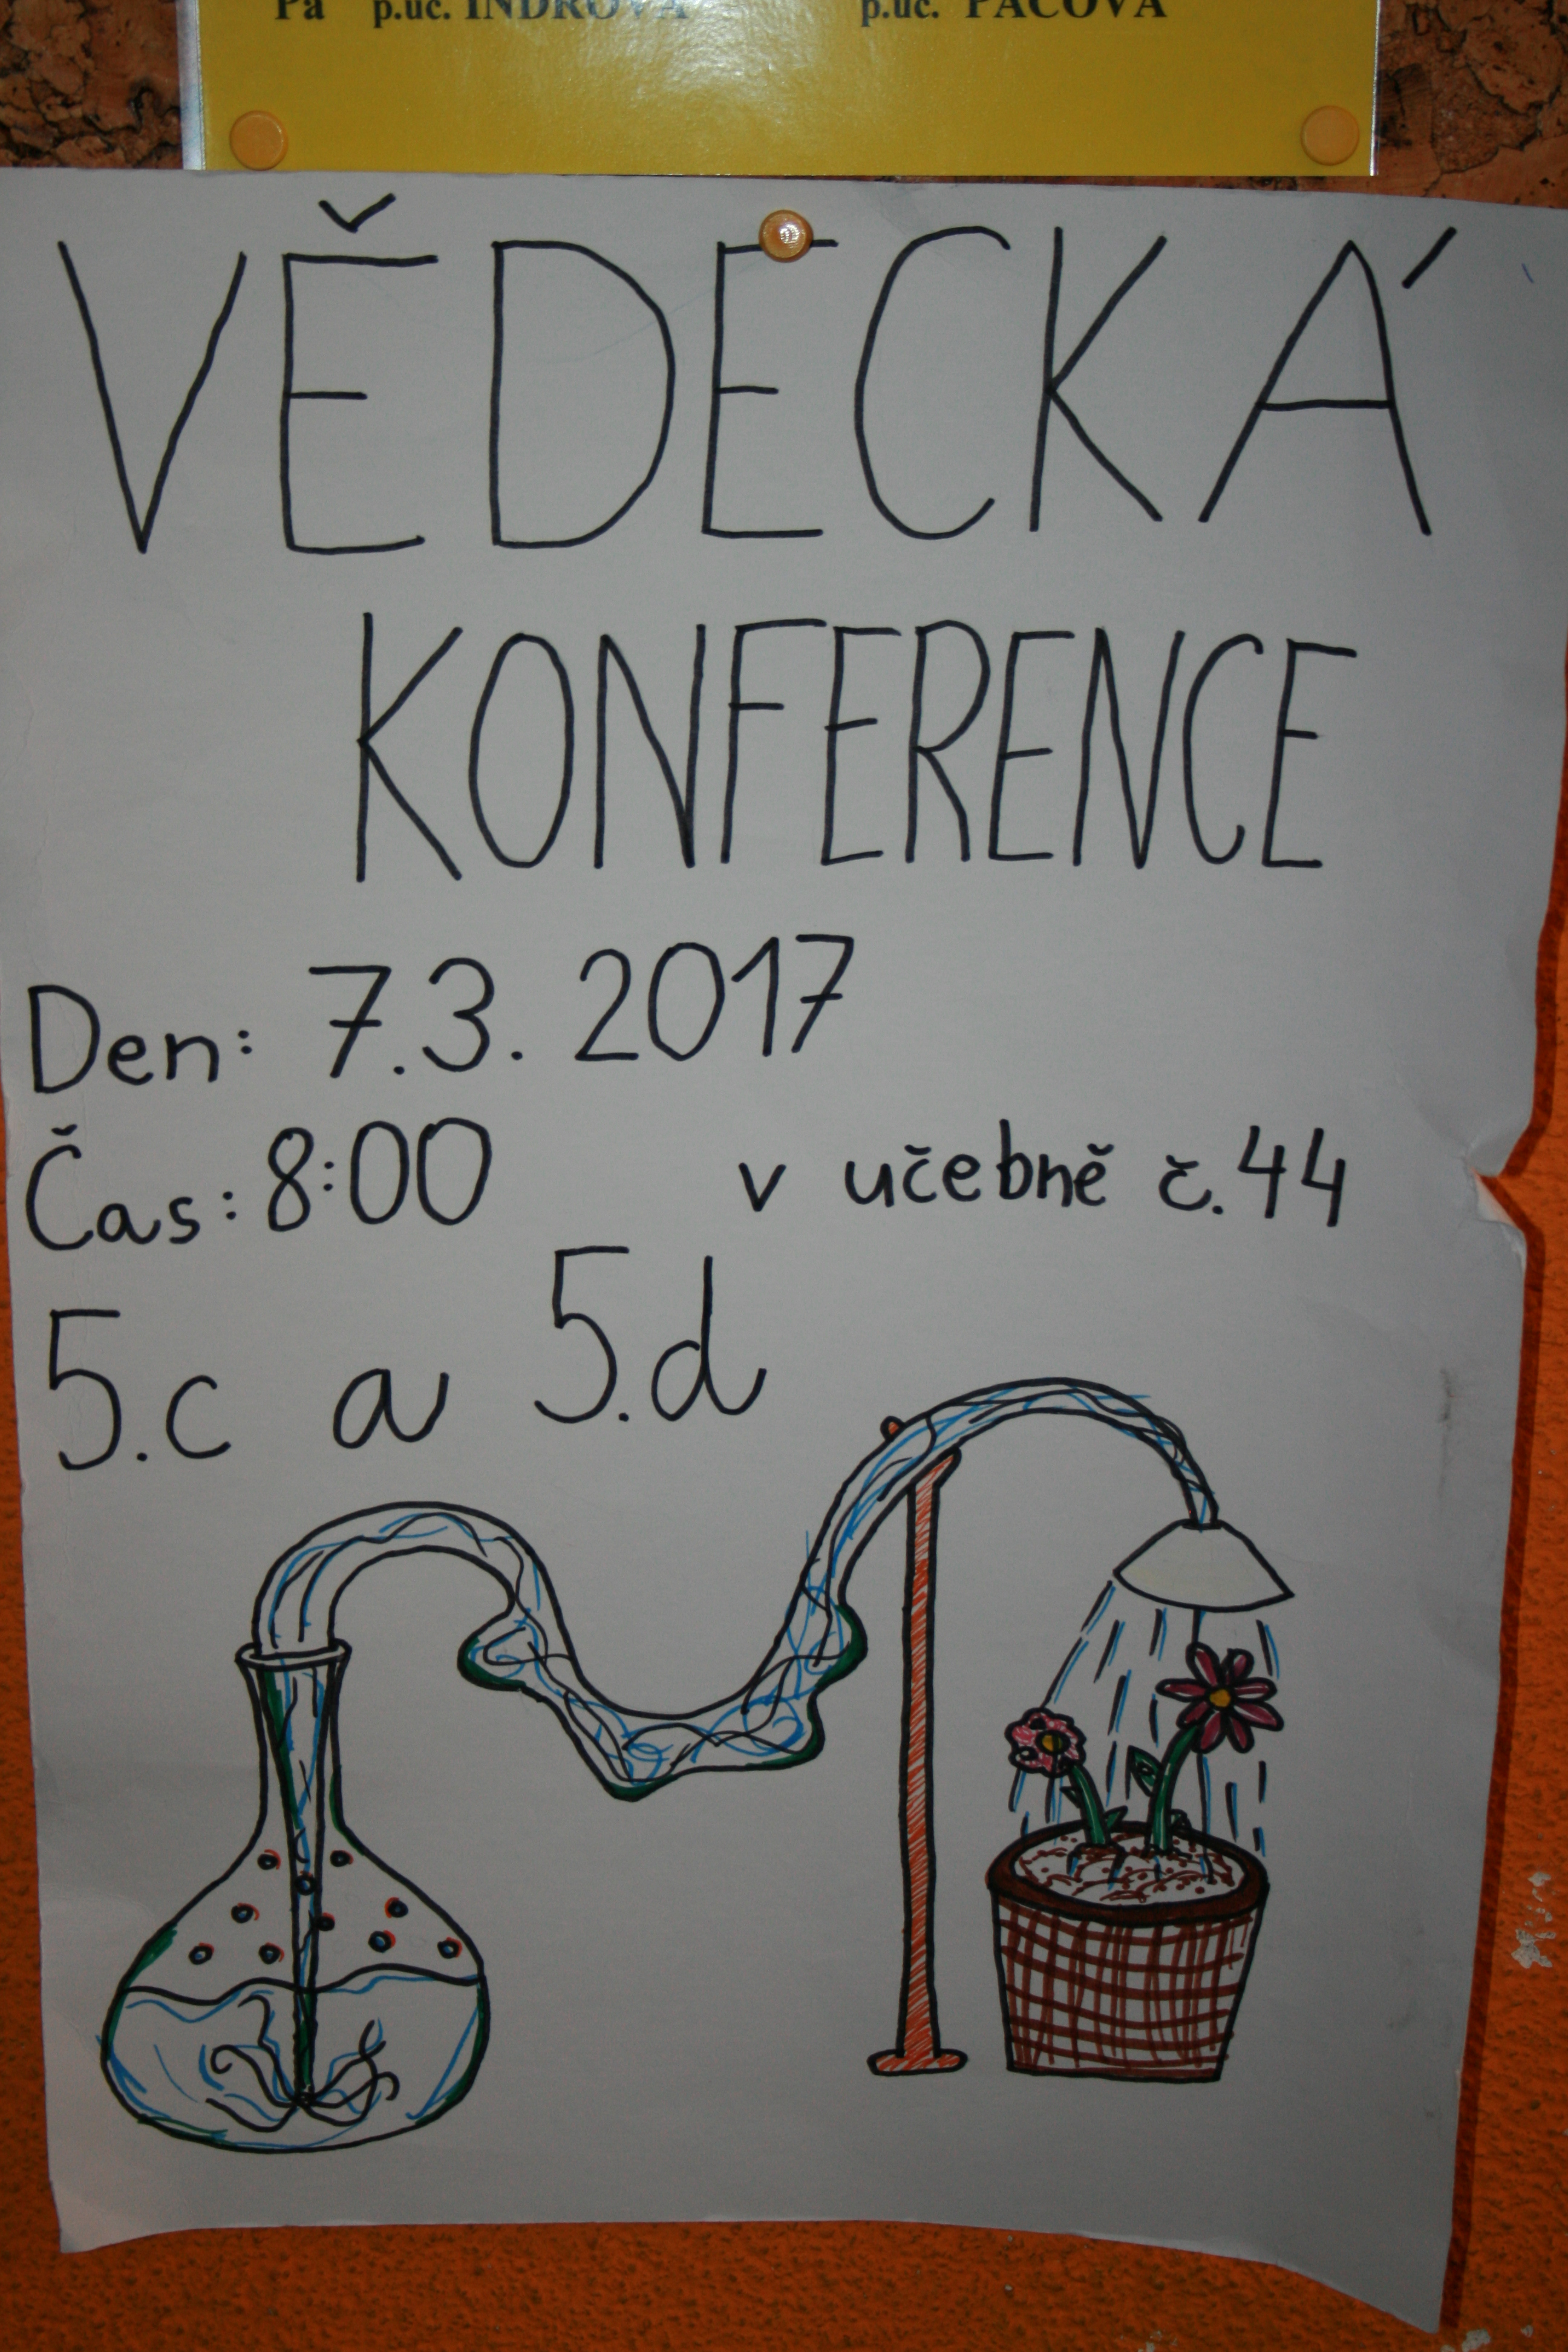 Pá p.uč. INDROVÁ p.uč. PACOVÁ
VĚDECKÁ
KONFERENCE
Den: 7.3. 2017
Čas: 8:00 v učebně č.44
5.c a 5.d